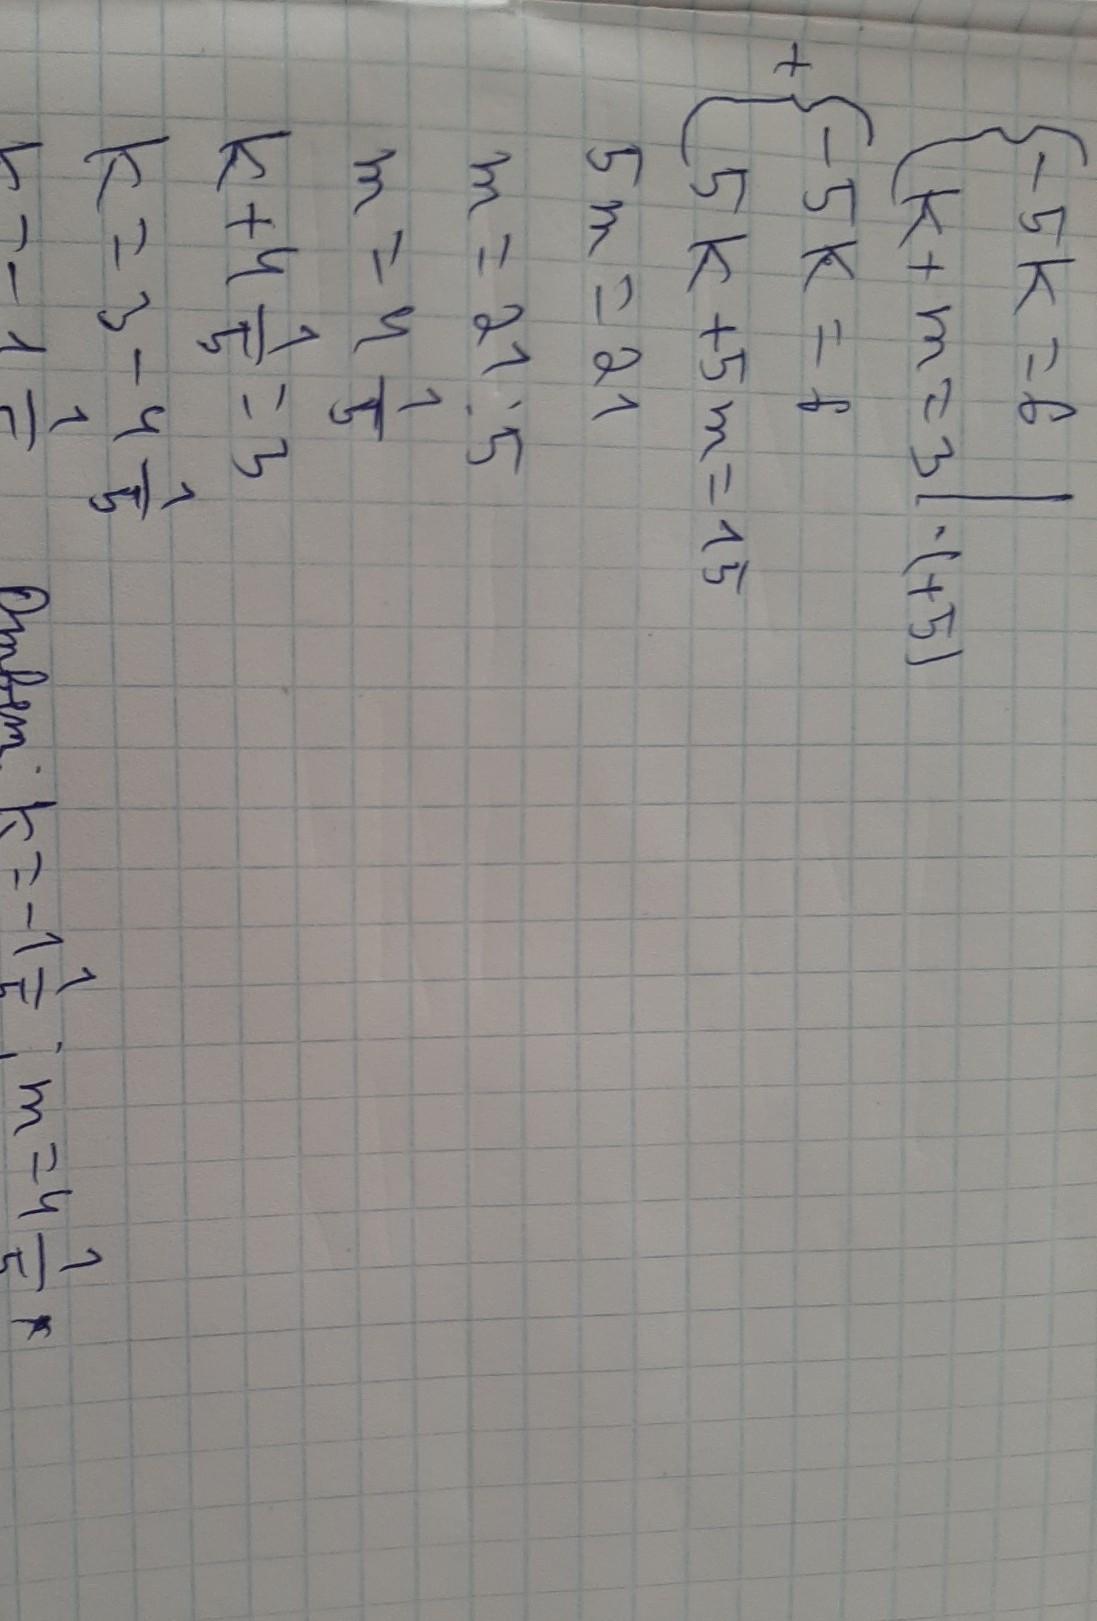 {-5k=6
{k+m=3|·(+5)
+{-5k=6
5k+5m=15
5m=21
m=21:5
m=4 1/5
k+4 1/5=3
k=3-4 1/5
k=-1 1/5
Ответ: k=-1 1/5; m=4 1/5.